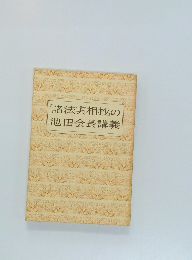 諸法実相抄の
池田会長講義